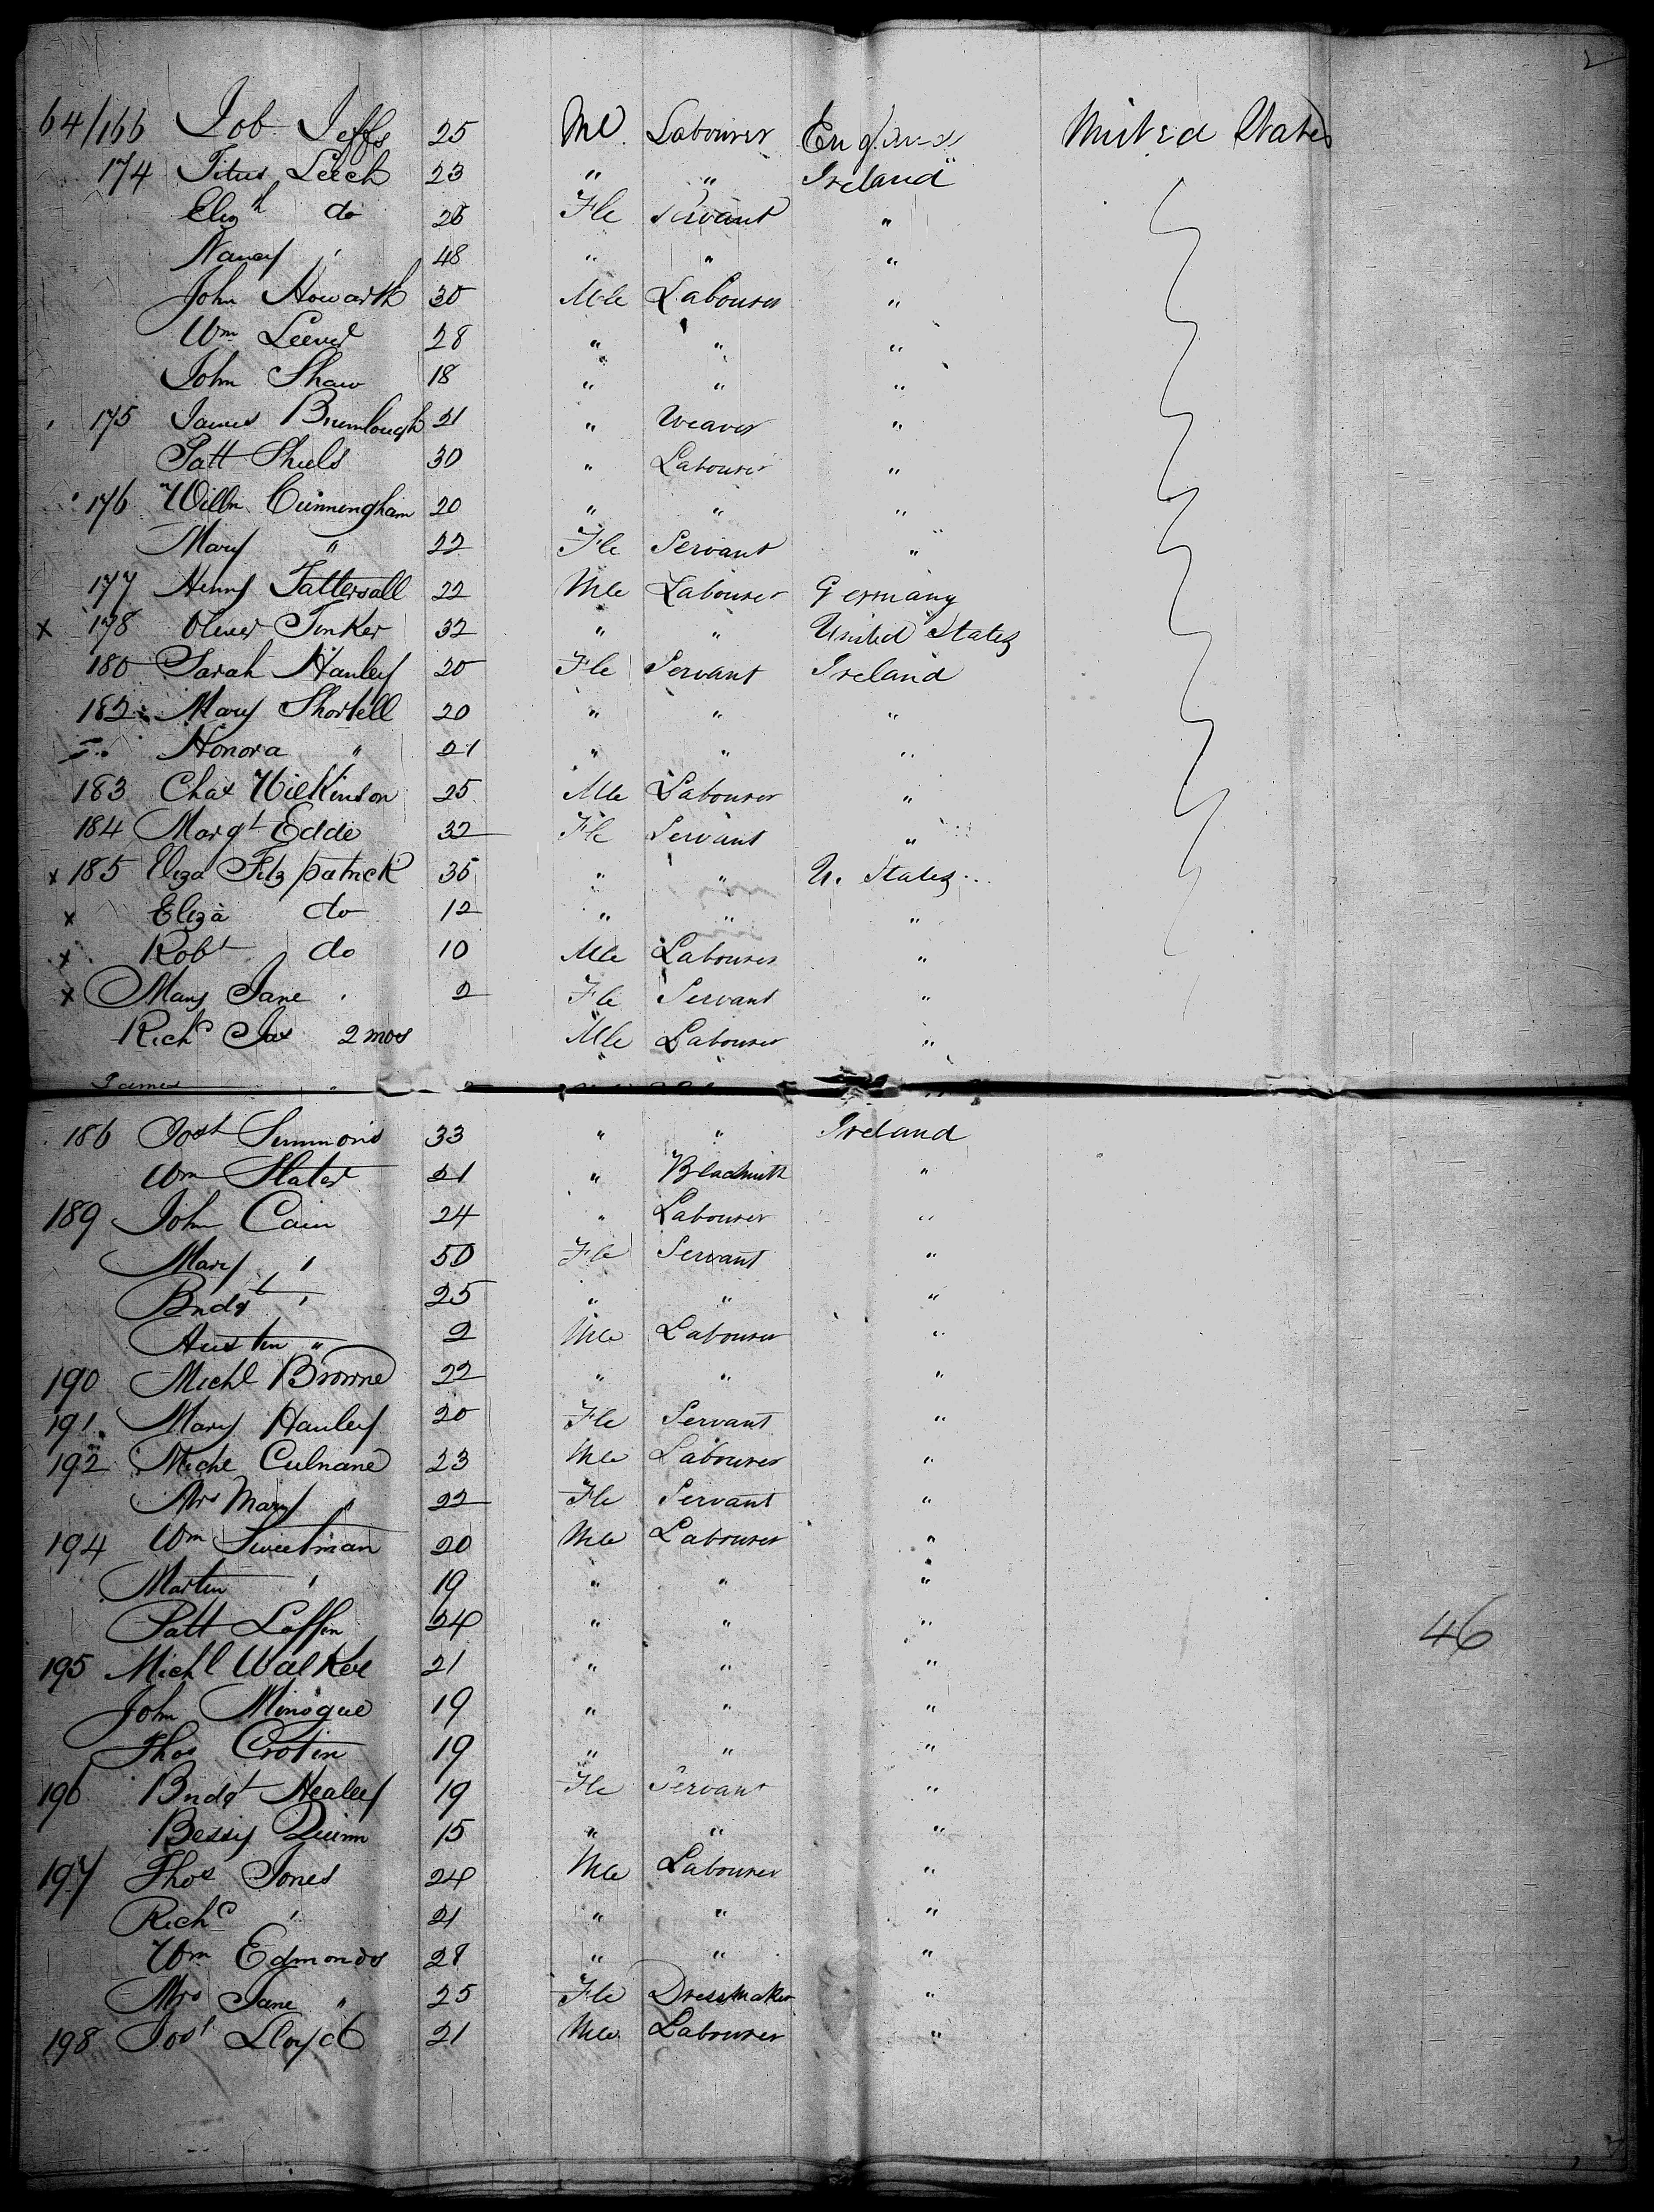 64/166 Job Jeffs 25 Mle Labourer England United States
174 Titus Leech 23 " " Ireland
Elizh do 26 Fle Servant "
Nancy " 48 " " "
John Howarth 30 Mle Labourer "
Wm Leever 28 " " "
John Shaw 18 " " "
175 James Brumlough 21 " Weaver "
Patt Shiels 30 " Labourer "
176 Willm Cunningham 20 " " "
Mary " 22 Fle Servant "
177 Henry Tattersall 22 Mle Labourer Germany
x 178 Oliver Tinker 32 " " United States
180 Sarah Hanley 20 Fle Servant Ireland
182 Mary Shortell 20 " " "
Honora " 21 " " "
183 Chas Wilkinson 25 Mle Labourer "
184 Margt Edde 32 Fle Servant "
x 185 Eliza Fitzpatrick 35 " " U. States
x Eliza do 12 " " "
x Robt do 10 Mle Labourer "
x Mary Jane " 2 Fle Servant "
Richd Jas 2 mos Mle Labourer "
James "
186 Josh Simmons 33 " " Ireland
Wm Slater 21 " Blacksmith "
189 John Cain 24 " Labourer "
Mary " 50 Fle Servant "
Bridgt " 25 " " "
Austin " 2 Mle Labourer "
190 Michl Browne 22 " " "
191 Mary Hanley 20 Fle Servant "
192 Michl Culnane 23 Mle Labourer "
Mrs Mary " 22 Fle Servant "
194 Wm Sweetman 20 Mle Labourer "
Martin " 19 " " "
Patt Laffin 24 " " "
46
195 Michl Walker 21 " " "
John Minogue 19 " " "
Thos Crotin 19 " " "
196 Bridgt Healey 19 Fle Servant "
Bessy Quinn 15 " " "
197 Thos Jones 24 Mle Labourer "
Richd " 21 " " "
Wm Edmonds 28 " " "
Mrs Jane " 25 Fle Dressmaker "
198 Josh Lloyd 21 Mle Labourer "